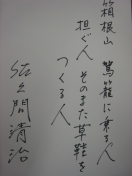 箱根山 篤籠に乗る人
担ぐ人 そのまた草鞋を
つくる人
佐久間清治